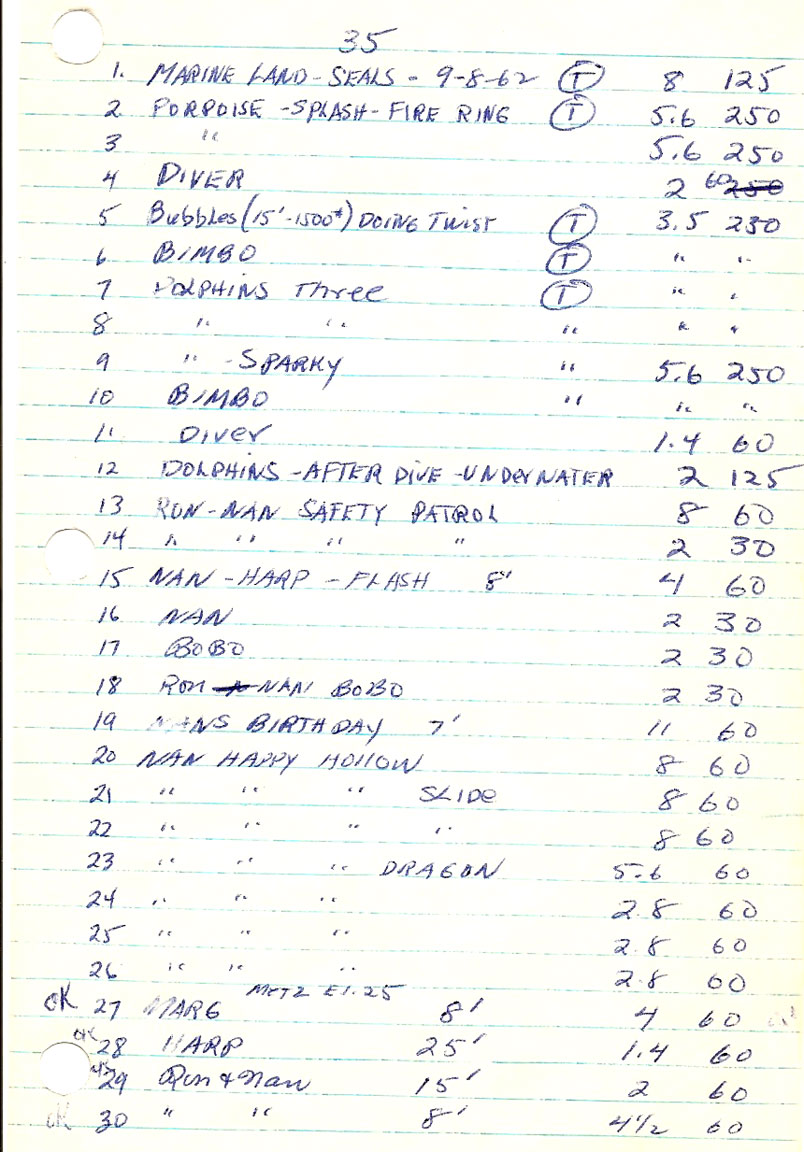 35
1. MARINE LAND - SEALS - 9-8-62 T 8 125
2 PORPOISE - SPLASH - FIRE RING T 5.6 250
3 " 5.6 250
4 DIVER 2 60 250
5 Bubbles (15'-1500#) DOING TWIST T 3.5 250
6 BIMBO T " "
7 DOLPHINS Three T " "
8 " " " " "
9 " - SPARKY " 5.6 250
10 BIMBO " " "
11 DIVER 1.4 60
12 DOLPHINS - AFTER DIVE - UNDERWATER 2 125
13 RON-NAN SAFETY PATROL 8 60
14 " " " " 2 30
15 NAN - HARP - FLASH 8' 4 60
16 NAN 2 30
17 BOBO 2 30
18 RON NAN BOBO 2 30
19 NANS BIRTHDAY 7' 11 60
20 NAN HAPPY HOLLOW 8 60
21 " " " SLIDE 8 60
22 " " " " 8 60
23 " " " DRAGON 5.6 60
24 " " " 2.8 60
25 " " " 2.8 60
26 " " " 2.8 60
METZ E1.25
OK 27 MARG 8' 4 60
OK 28 HARP 25' 1.4 60
29 Ron & Nan 15' 2 60
OK 30 " " 8' 4 1/2 60